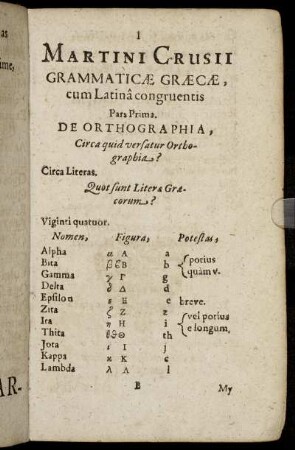 as
ime,
AR-
1
MARTINI CRUSII
GRAMMATICÆ GRÆCÆ,
cum Latinâ congruentis
Pars Prima.
DE ORTHOGRAPHIA,
Circa quid versatur Ortho-
graphia?
Circa Literas.
Quot sunt Litera Græ-
corum?
Viginti quatuor.
Nomen, Figura, Potestas,
Alpha α Α a
Bita β ϐ Β b potius
Gamma γ Γ g quàm v.
Delta δ Δ d
Epsilon ε Ε e breve.
Zita ζ Ζ z vel potius
Ita η Η i e longum,
Thita ϑ Θ th
Jota ι Ι j
Kappa κ Κ c
Lambda λ Λ l
B My